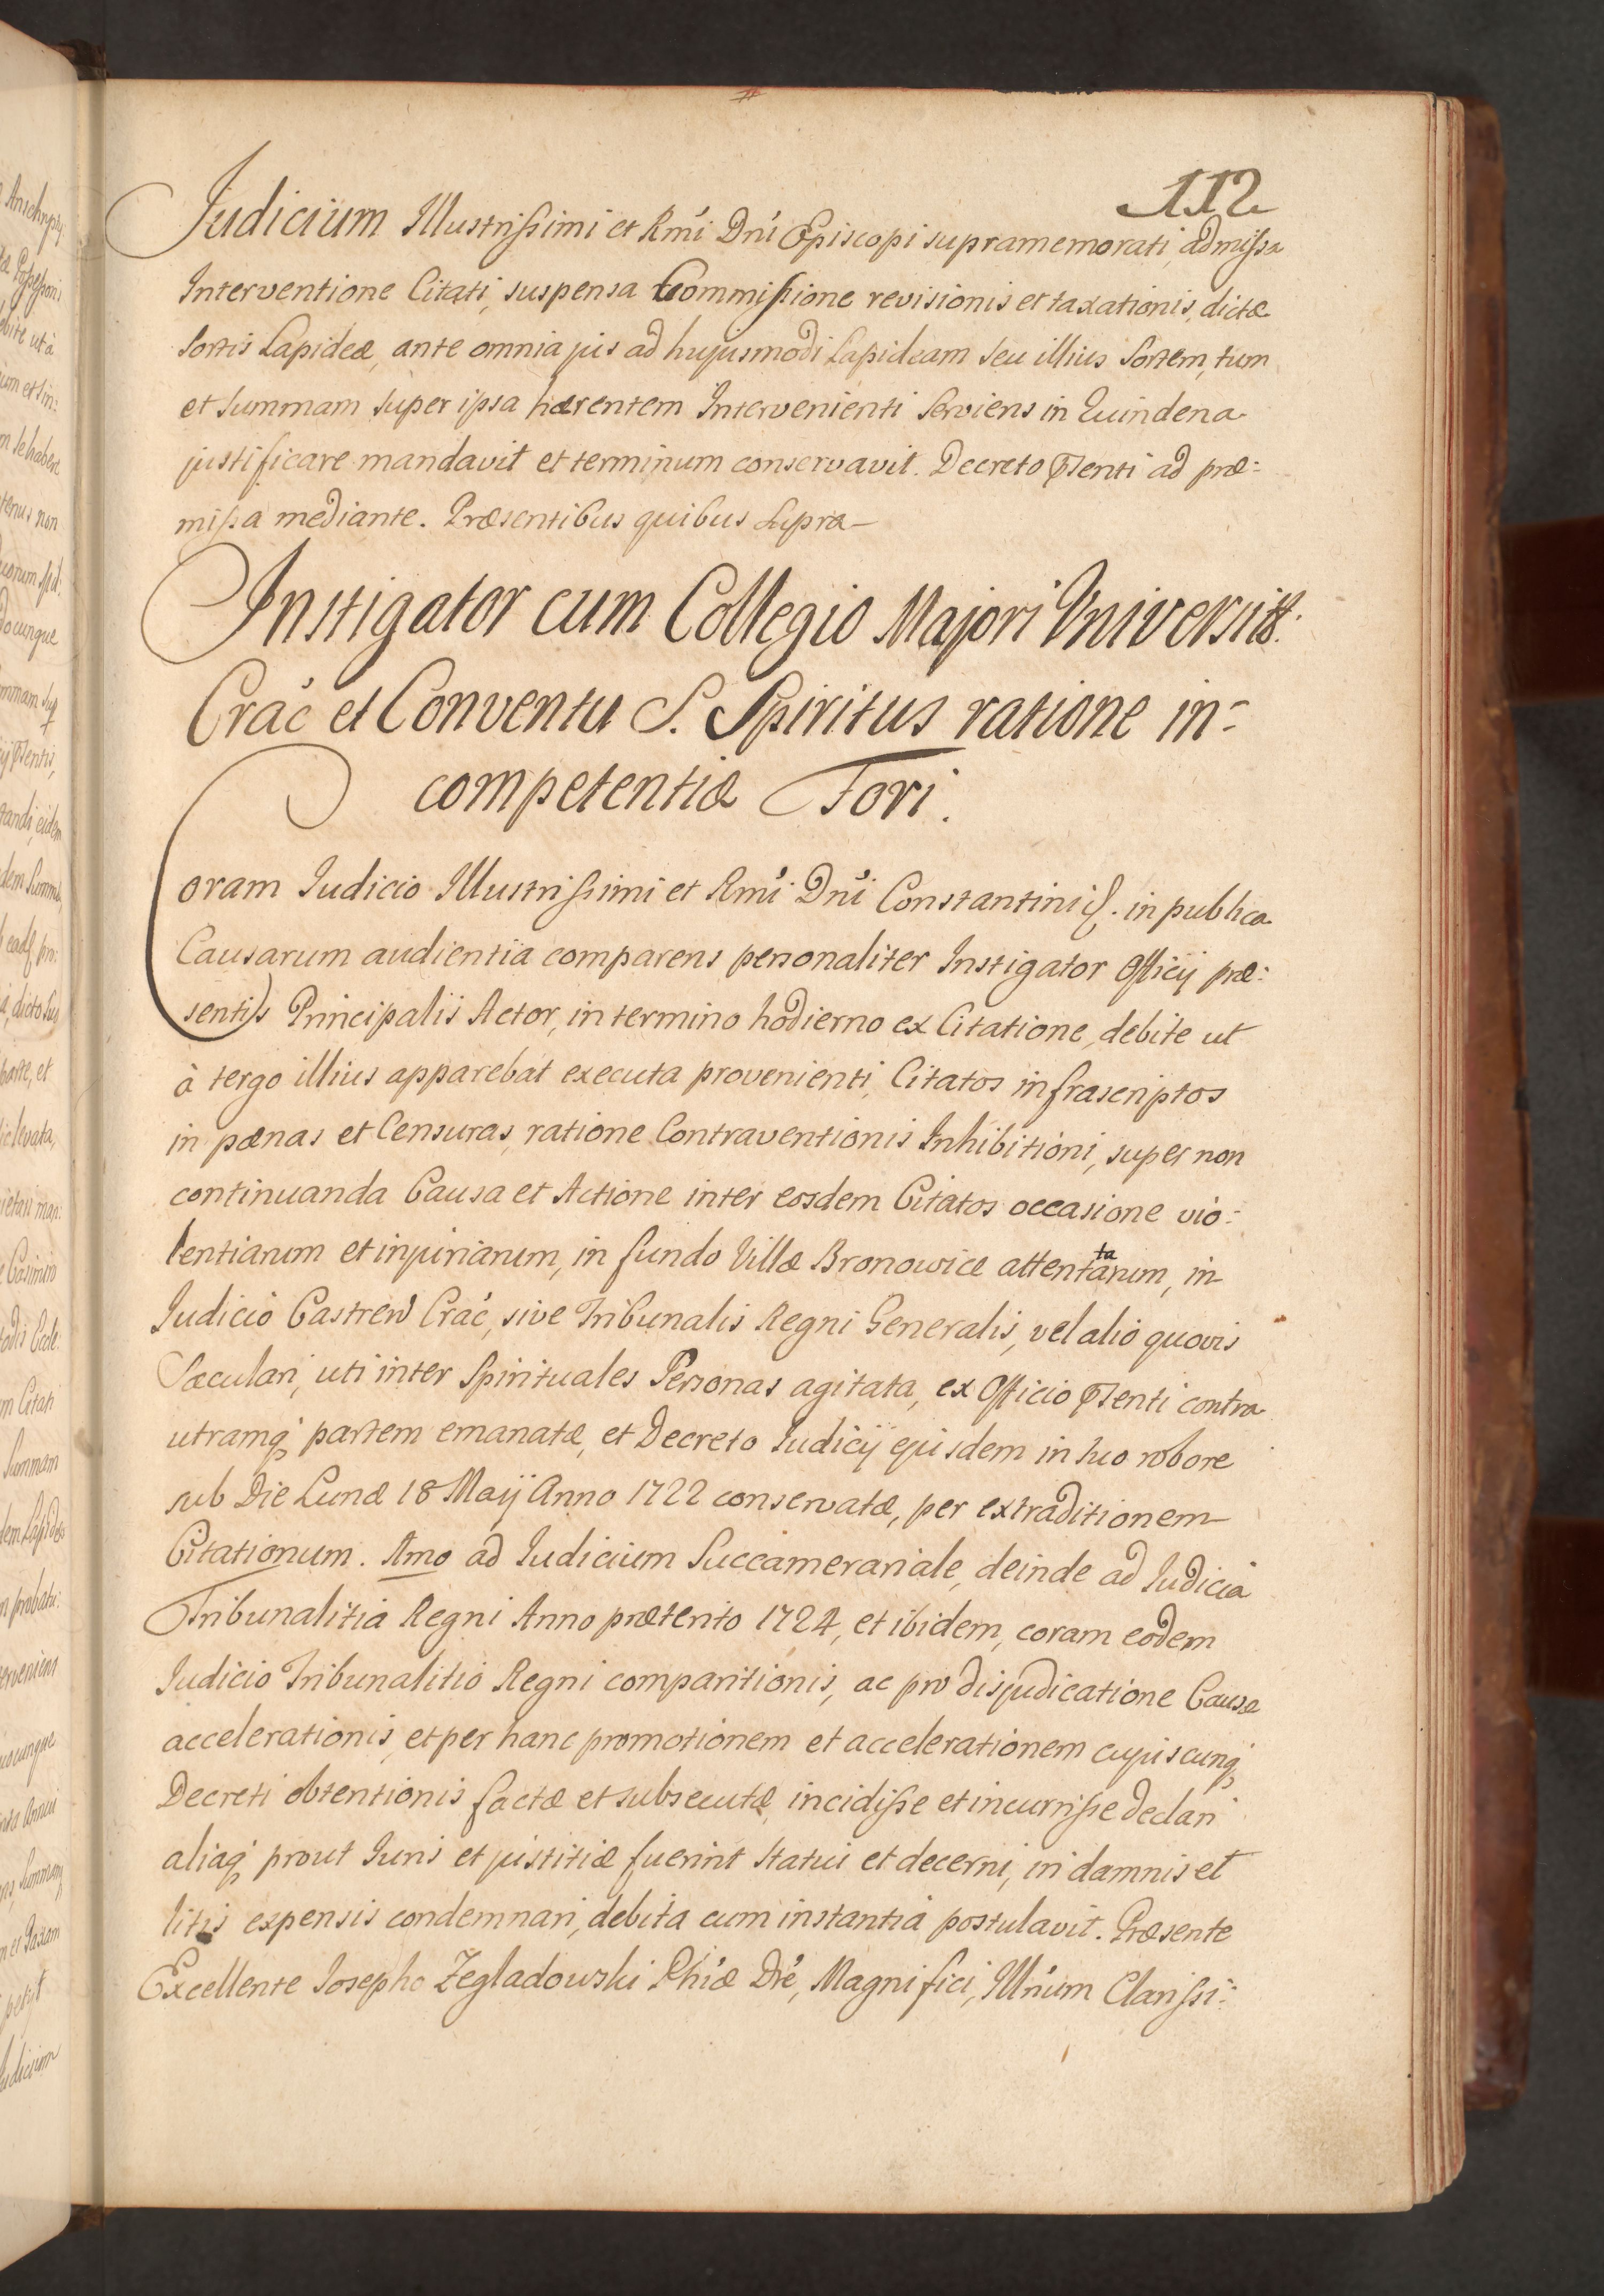 112
Judicium Illustrissimi et Rmi Dni Episcopi supramemorati, admissa
Interventione Citati, suspensa Commissione revisionis et taxationis, dictæ
Sortis Lapideæ, ante omnia jus ad hujusmodi Lapideam seu illius Sortem, tum
et Summam super ipsa hærentem Intervenienti Serviens in Quindena
justificare mandavit et terminum conservavit. Decreto Pñenti ad præ=
missa mediante. Præsentibus quibus Supra—
Instigator cum Collegio Majori Universit:
Crac et Conventu S. Spiritus ratione in=
competentiæ Fori.
Coram Judicio Illustrissimi et Rmi Dni Constantini . in publica
Causarum audientia comparens personaliter Instigator Officij præ=
sentis Principalis Actor, in termino hodierno ex Citatione, debite ut
à tergo illius apparebat executa provenienti, Citatos infrascriptos
in pœnas et Censuras, ratione Contraventionis Inhibitioni, super non
continuanda Causa et Actione inter eosdem Citatos occasione vio=
lentiarum et injuriarum, in fundo Villæ Bronowice attentatarum, in
Judicio Castren Crac, sive Tribunalis Regni Generalis, vel alio quovis
Sæculari, uti inter Spirituales Personas agitata, ex Officio Pñenti contra
utramq partem emanatæ, et Decreto Judicij ejusdem in suo robore
sub Die Lunæ 18 Maij Anno 1722 conservatæ, per extraditionem
Citationum. Amo ad Judicium Succamerariale, deinde ad Judicia
Tribunalitia Regni Anno prætento 1724, et ibidem, coram eodem
Judicio Tribunalitio Regni comparitionis, ac pro disjudicatione Causæ
accelerationis, et per hanc promotionem et accelerationem cujuscunq
Decreti obtentionis factæ et subsecutæ, incidisse et incurrisse declari
aliaq prout Juris et justitiæ fuerint statui et decerni, in damnis et
litis expensis condemnari, debita cum instantia postulavit. Præsente
Excellente Josepho Zegladowski Phiæ Dre, Magnifici, Illrium Clarissi=